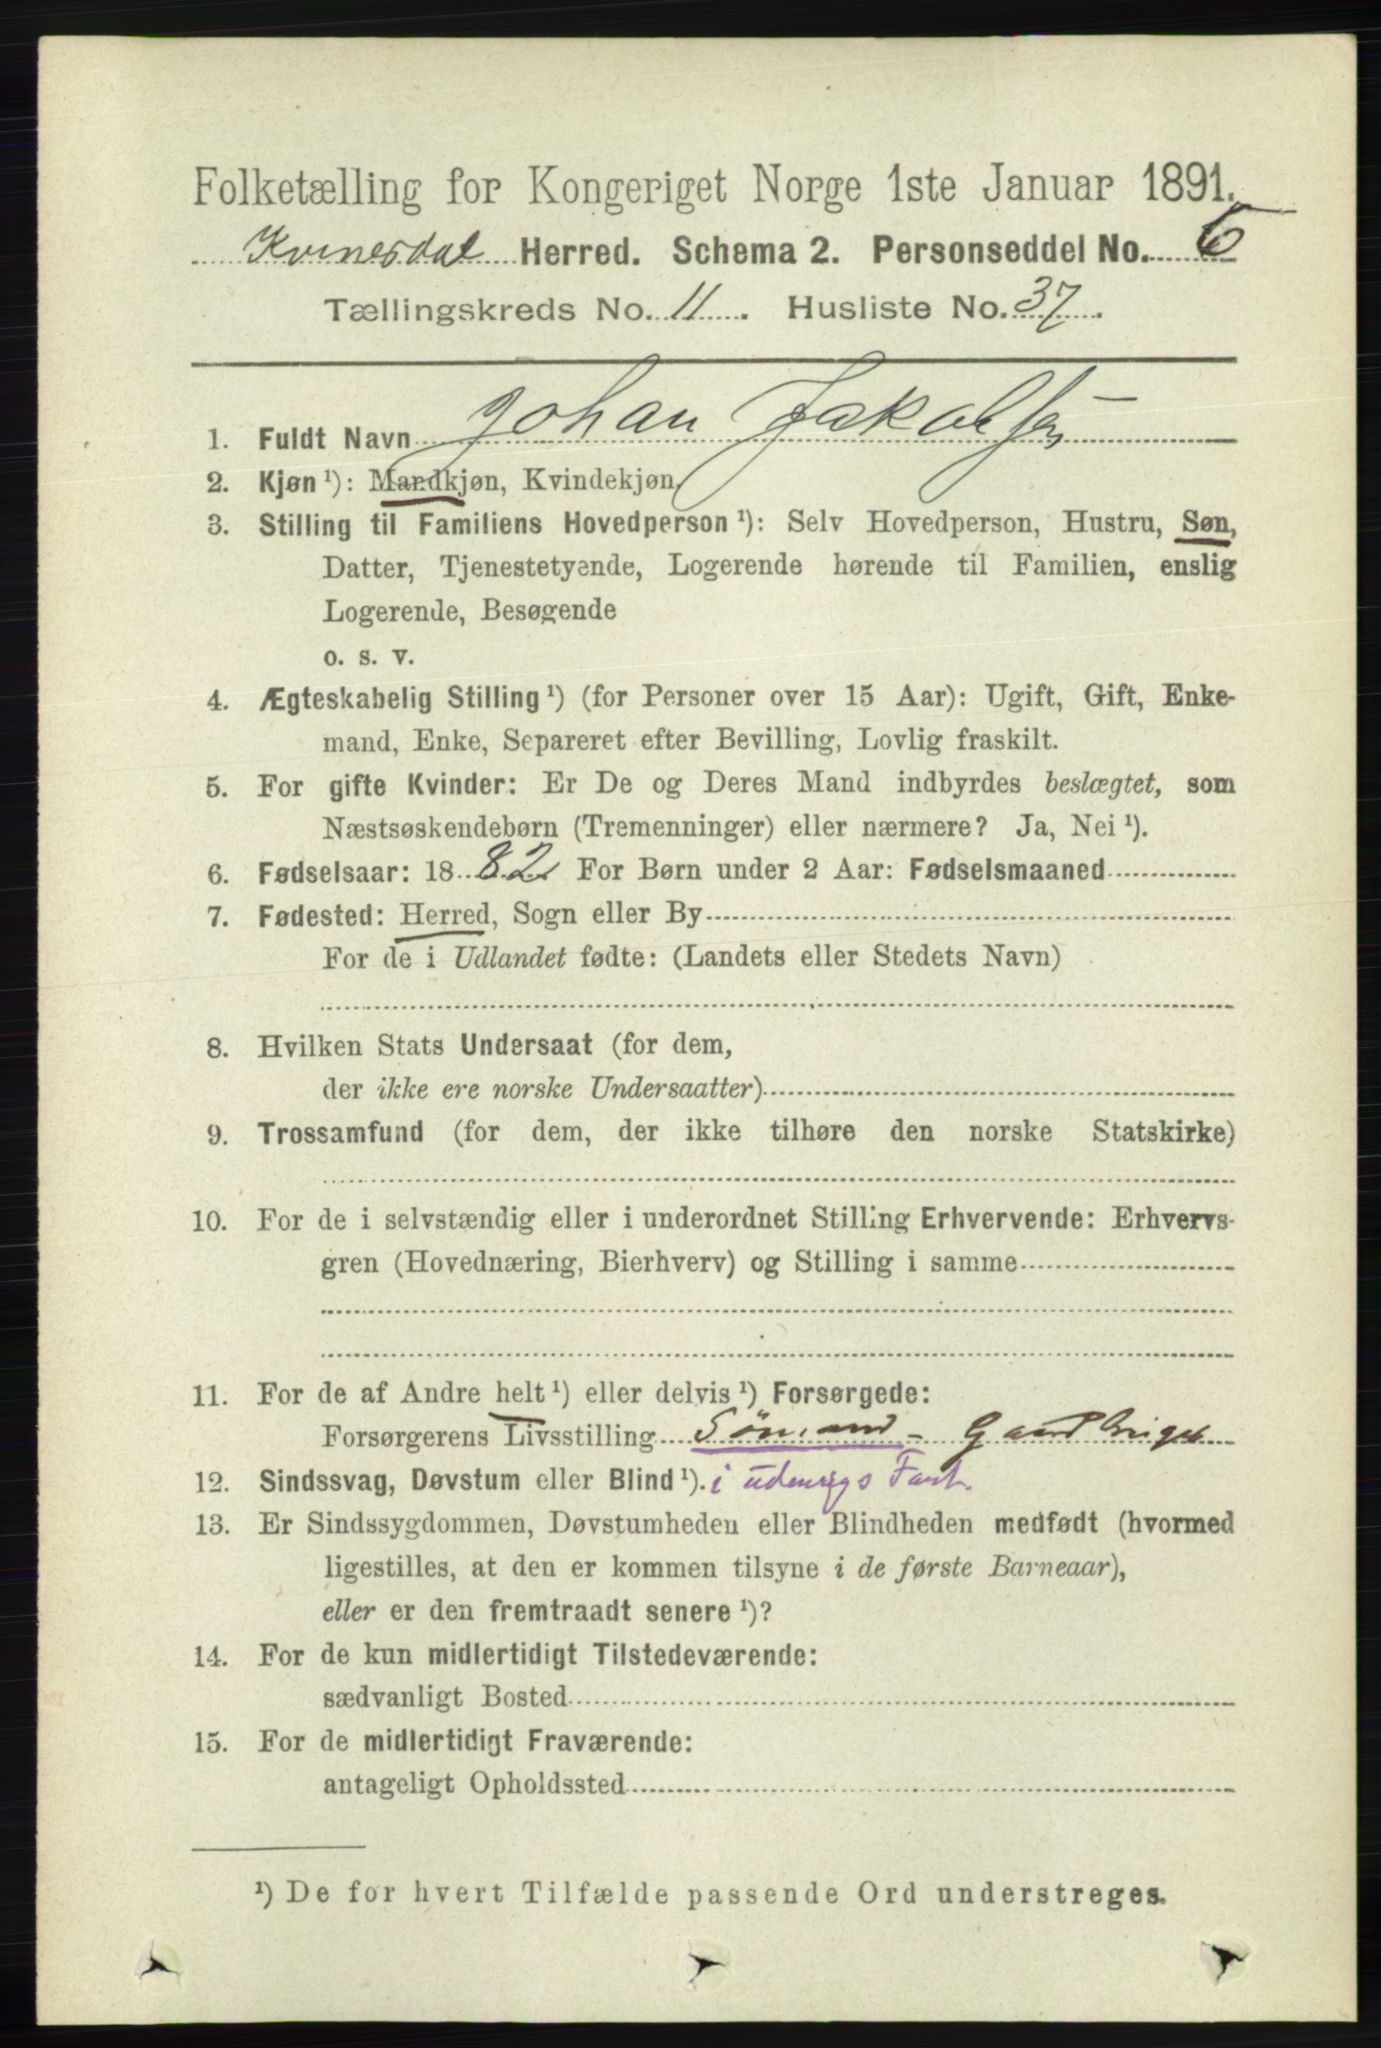 Folketælling for Kongeriget Norge 1ste Januar 1891.
Kvinesdal Herred. Schema 2. Personseddel No. 6
Tællingskreds No. 11. Husliste No. 37.
1. Fuldt Navn Johan Jakobsen
2. Kjøn ¹): Mandkjøn, Kvindekjøn
3. Stilling til Familiens Hovedperson ¹): Selv Hovedperson, Hustru, Søn,
Datter, Tjenestetyende, Logerende hørende til Familien, enslig
Logerende, Besøgende
o. s. v.
4. Ægteskabelig Stilling ¹) (for Personer over 15 Aar): Ugift, Gift, Enke-
mand, Enke, Separeret efter Bevilling, Lovlig fraskilt.
5. For gifte Kvinder: Er De og Deres Mand indbyrdes beslægtet, som
Næstsøskendebørn (Tremenninger) eller nærmere? Ja, Nei ¹).
6. Fødselsaar: 1882. For Børn under 2 Aar: Fødselsmaaned
7. Fødested: Herred, Sogn eller By
For de i Udlandet fødte: (Landets eller Stedets Navn)
8. Hvilken Stats Undersaat (for dem,
der ikke ere norske Undersaatter)
9. Trossamfund (for dem, der ikke tilhøre den norske Statskirke)
10. For de i selvstændig eller i underordnet Stilling Erhvervende: Erhvervs-
gren (Hovednæring, Bierhverv) og Stilling i samme
11. For de af Andre helt ¹) eller delvis ¹) Forsørgede:
Forsørgerens Livsstilling Sømand - Gaardbruger
12. Sindssvag, Døvstum eller Blind ¹). i udenrigs Fart.
13. Er Sindssygdommen, Døvstumheden eller Blindheden medfødt (hvormed
ligestilles, at den er kommen tilsyne i de første Barneaar),
eller er den fremtraadt senere ¹)?
14. For de kun midlertidigt Tilstedeværende:
sædvanligt Bosted
15. For de midlertidigt Fraværende:
antageligt Opholdssted
¹) De for hvert Tilfælde passende Ord understreges.